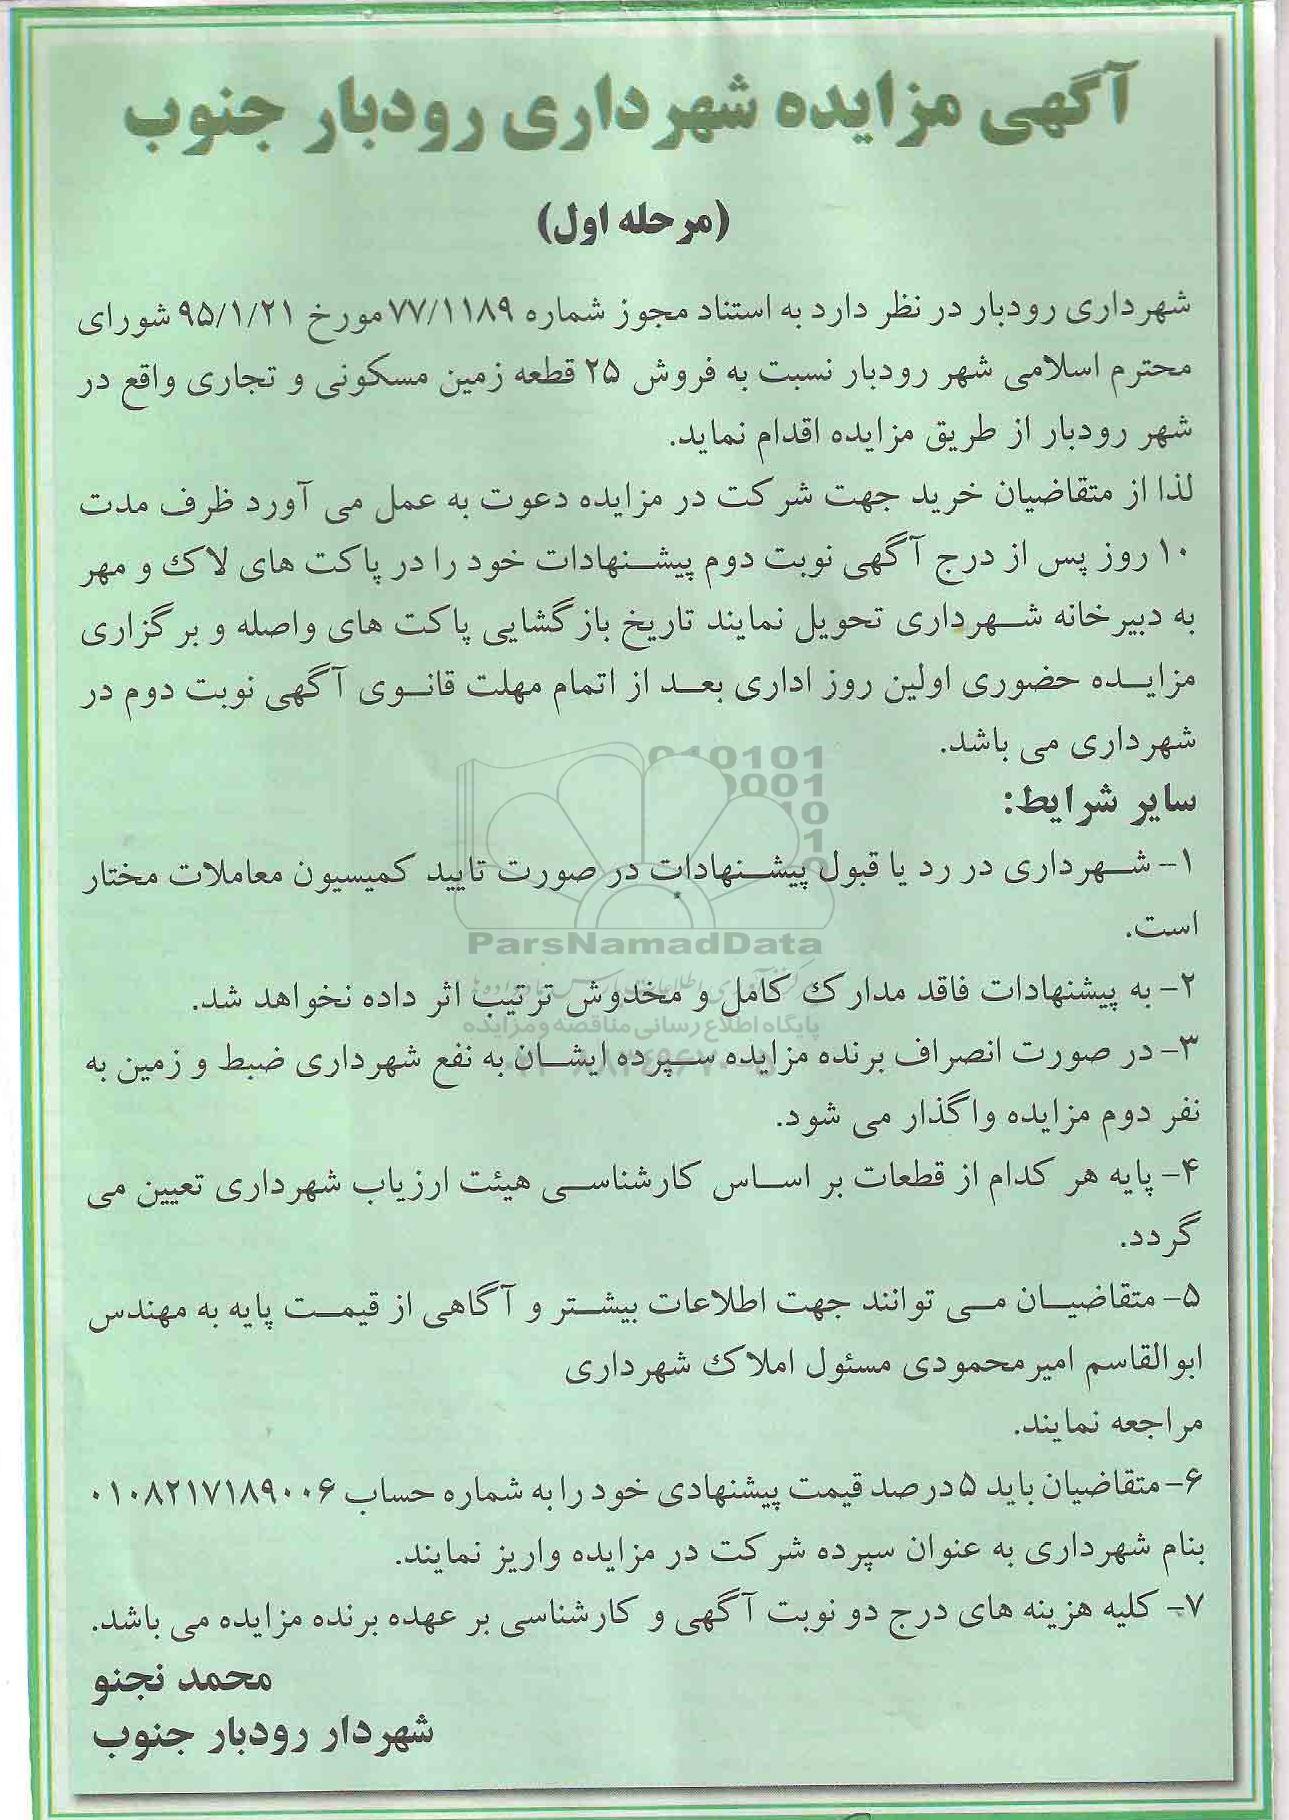 آگهی مزایده شهرداری رودبار جنوب
(مرحله اول)
شهرداری رودبار در نظر دارد به استناد مجوز شماره ۷۷/۱۱۸۹ مورخ ۹۵/۱/۲۱ شورای
محترم اسلامی شهر رودبار نسبت به فروش ۲۵ قطعه زمین مسکونی و تجاری واقع در
شهر رودبار از طریق مزایده اقدام نماید.
لذا از متقاضیان خرید جهت شرکت در مزایده دعوت به عمل می آورد ظرف مدت
۱۰ روز پس از درج آگهی نوبت دوم پیشنهادات خود را در پاکت های لاک و مهر
به دبیرخانه شهرداری تحویل نمایند تاریخ بازگشایی پاکت های واصله و برگزاری
مزایده حضوری اولین روز اداری بعد از اتمام مهلت قانوی آگهی نوبت دوم در
شهرداری می باشد.
سایر شرایط:
۱- شهرداری در رد یا قبول پیشنهادات در صورت تایید کمیسیون معاملات مختار
است.
ParsNamadData
۲- به پیشنهادات فاقد مدارک کامل و مخدوش ترتیب اثر داده نخواهد شد.
پایگاه اطلاع رسانی مناقصه و مزایده
۳- در صورت انصراف برنده مزایده سپرده ایشان به نفع شهرداری ضبط و زمین به
نفر دوم مزایده واگذار می شود.
۴- پایه هر کدام از قطعات بر اساس کارشناسی هیئت ارزیاب شهرداری تعیین می
گردد.
۵- متقاضیان می توانند جهت اطلاعات بیشتر و آگاهی از قیمت پایه به مهندس
ابوالقاسم امیرمحمودی مسئول املاک شهرداری
مراجعه نمایند.
۶- متقاضیان باید ۵ درصد قیمت پیشنهادی خود را به شماره حساب ۰۱۰۸۲۱۷۱۸۹۰۰۶
بنام شهرداری به عنوان سپرده شرکت در مزایده واریز نمایند.
۷- کلیه هزینه های درج دو نوبت آگهی و کارشناسی بر عهده برنده مزایده می باشد.
محمد نجنو
شهردار رودبار جنوب